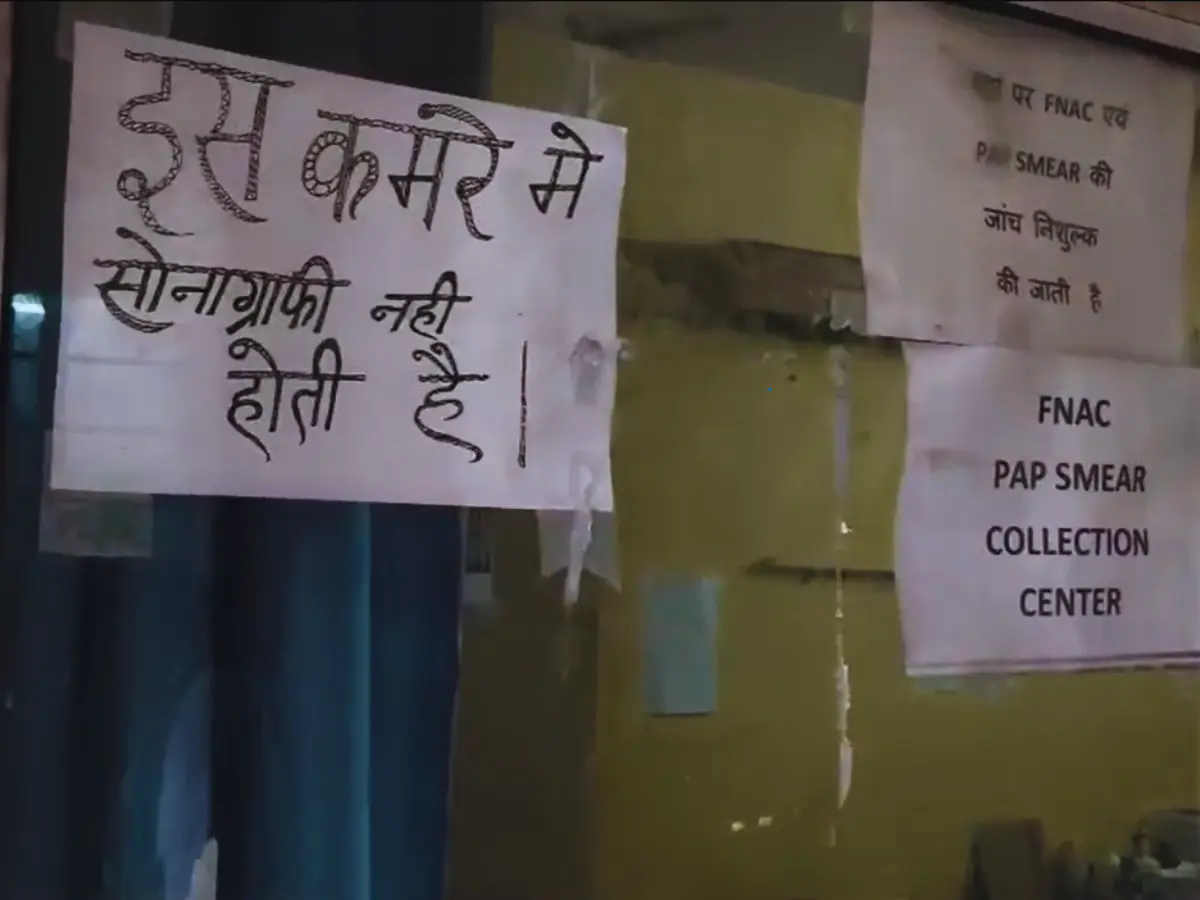 इस कमरे मे
सोनाग्राफी नही
होती है।
पर FNAC एवं
PAP SMEAR की
जांच निशुल्क
की जाती है
FNAC
PAP SMEAR
COLLECTION
CENTER